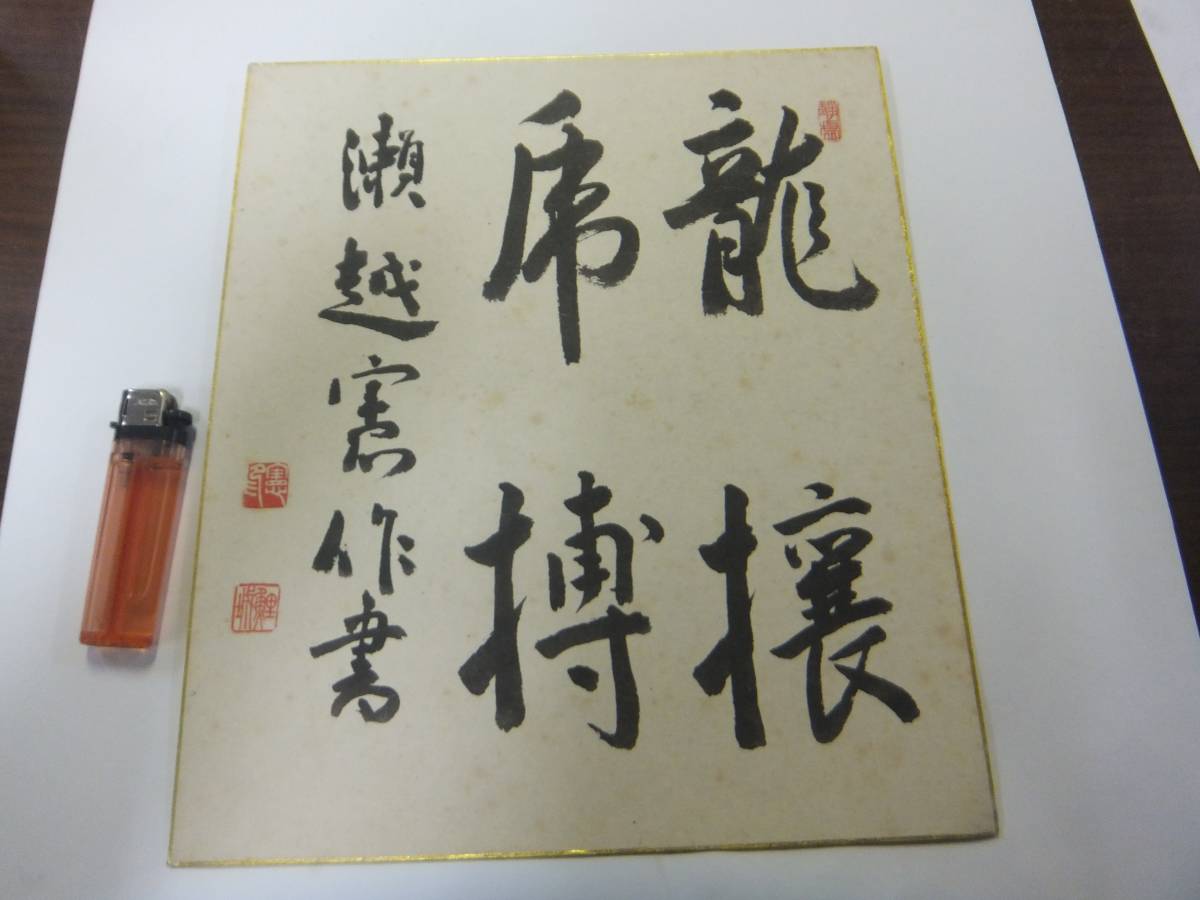 龍攘
虎搏
瀬越憲作書